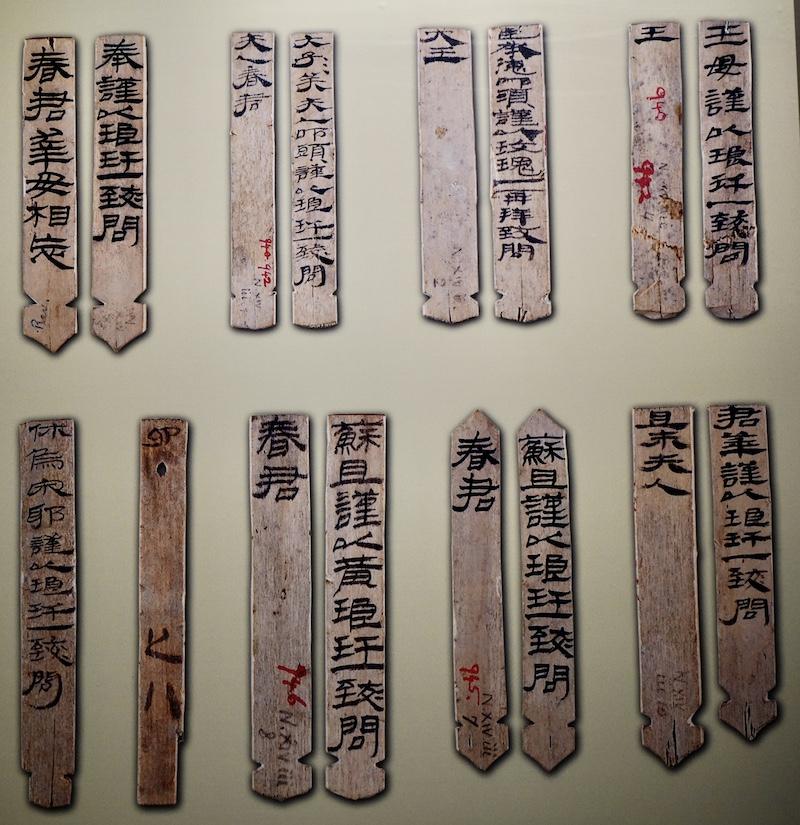 春君幸毋相忘
奉謹以琅玕一致問
夫人春君
太子美夫人叩頭謹以琅玕一致問
大王
臣承德叩頭謹以玫瑰一再拜致問
王
王母謹以琅玕一致問
休烏宋耶謹以琅玕一致問
春君
946
N XIV iii
8
蘇且謹以黃琅玕一致問
春君
945
N XIV iii
7
蘇且謹以琅玕一致問
且末夫人
N XIV
iii 10
君華謹以琅玕一致問